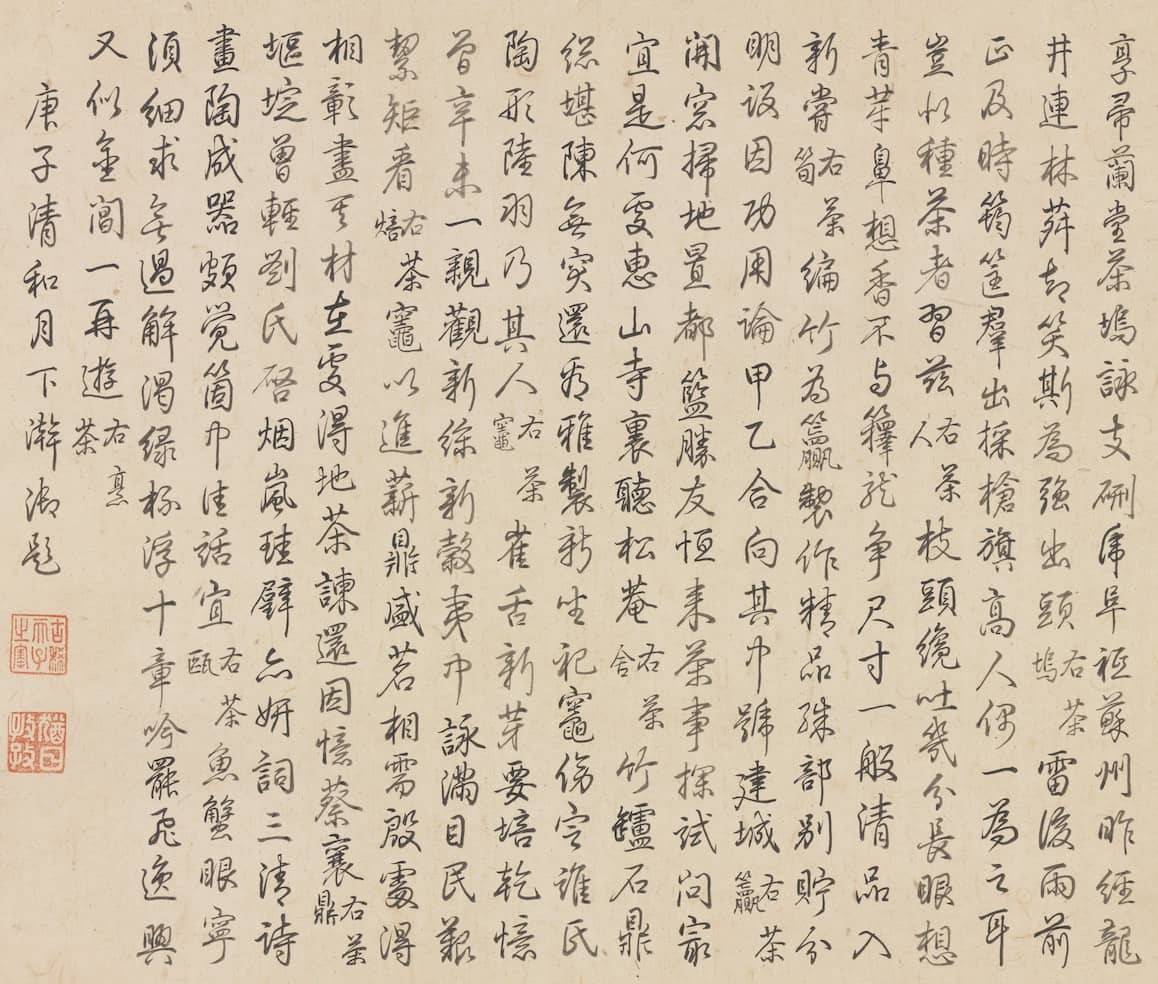 享帚蘭堂茶塢詠支硎虎阜祗蘇州昨經龍
井連林薜却笑斯為強出頭右茶塢雷後雨前
正及時筠筐羣出採槍旗高人偶一為之耳
豈似種茶者習茲右茶人枝頭纔吐幾分長眼想
青芽鼻想香不与籜龍争尺寸一般清品入
新嘗右茶筍編竹為籯製作精品殊部別貯分
明設因功用論甲乙合向其中號建城右茶籯
開窓掃地置都籃勝友恒来茶事探試问㝡
宜是何處惠山寺裏聽松菴右茶舍竹鑪石鼎
總堪陳無突還為雅製新坐祀竈傍定誰氏
陶形陸羽乃其人右茶竈雀舌新芽要培乾憶
曾辛未一親觀新綠新穀夷中詠滿目民艱
絜矩看右茶焙竈以進薪鼎盛茗相需殷處得
相彰盡其材在處得地茶諫還因憶蔡襄右茶鼎
堀埞曾輕劉氏啓烟嵐珪璧亦妍詞三清詩
畫陶成器頗覺箇中佳話宜右茶甌魚蟹眼寧
須細求無過解渴緑杯浮十章吟罷飛逸興
又似金閶一再遊右烹茶
庚子清和月下澣御題
古稀天子之寶
猶日孜孜